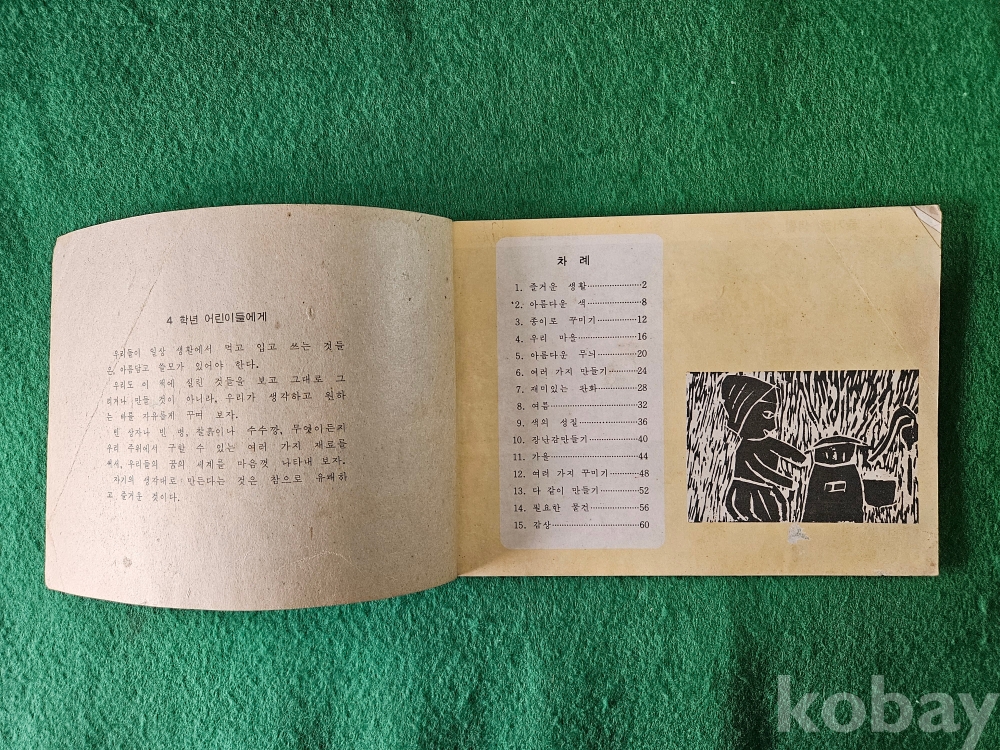 4 학년 어린이들에게
우리들이 일상 생활에서 먹고 입고 쓰는 것들
은 아름답고 쓸모가 있어야 한다.
우리도 이 책에 실린 것들을 보고 그대로 그
리거나 만들 것이 아니라, 우리가 생각하고 원하
는 바를 자유롭게 꾸며 보자.
빈 상자나 빈 병, 찰흙이나 수수깡, 무엇이든지
우리 주위에서 구할 수 있는 여러 가지 재료를
써서, 우리들의 꿈의 세계를 마음껏 나타내 보자.
자기의 생각대로 만든다는 것은 참으로 유쾌하
고, 즐거운 것이다.
차 례
1. 즐거운 생활 2
2. 아름다운 색 8
3. 종이로 꾸미기 12
4. 우리 마을 16
5. 아름다운 무늬 20
6. 여러 가지 만들기 24
7. 재미있는 판화 28
8. 여름 32
9. 색의 성질 36
10. 장난감만들기 40
11. 가을 44
12. 여러 가지 꾸미기 48
13. 다 같이 만들기 52
14. 필요한 물건 56
15. 감상 60
kobay